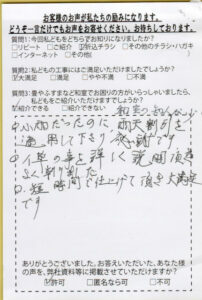 お客様のお声が私たちの励みになります。
どうぞ一言だけでもお声をお寄せください。お待ちしております。
質問1:今回私どもをどちらでお知りになりましたか?
□リピート □ご紹介 ☑折込チラシ □その他のチラシ・ハガキ
□インターネット □その他(
質問2:私どもの工事にはご満足いただけましたでしょうか?
☑大満足 □満足 □やや不満 □不満
質問3:畳やふすまなど和室でお困りの方がいらっしゃいましたら、
ご紹介いただけますでしょうか?
☑紹介できる □紹介できない
小雨だったのに雨天割引を
適用して下さり
の事を詳しく説明頂き
よく判りました
短時間で仕上げて頂き大満足
です
ありがとうございました。お答えいただいた、あなた様
の声を、弊社資料等に掲載させていただけますか?
☑許可 □匿名なら可 □不可